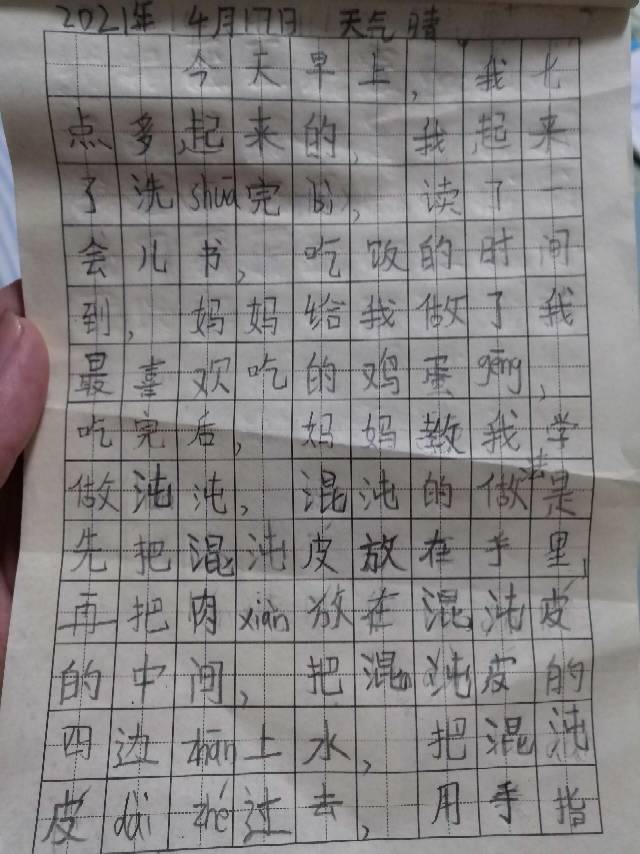 2021年 4月17日 天气晴。
今天早上，我七
点多，起来的，我起来
了洗shuā完
读了一
会儿书，吃饭的时间
到，妈妈给我做了我
最喜欢吃的鸡蛋gēng，
吃完后，妈妈教我学
做沌沌，混沌的做法是
先把混沌皮放在手里，
再把肉xiàn放在混沌皮
的中间，把混沌皮的
四边zhān上水，把混沌
皮duì zhé过去，用手指